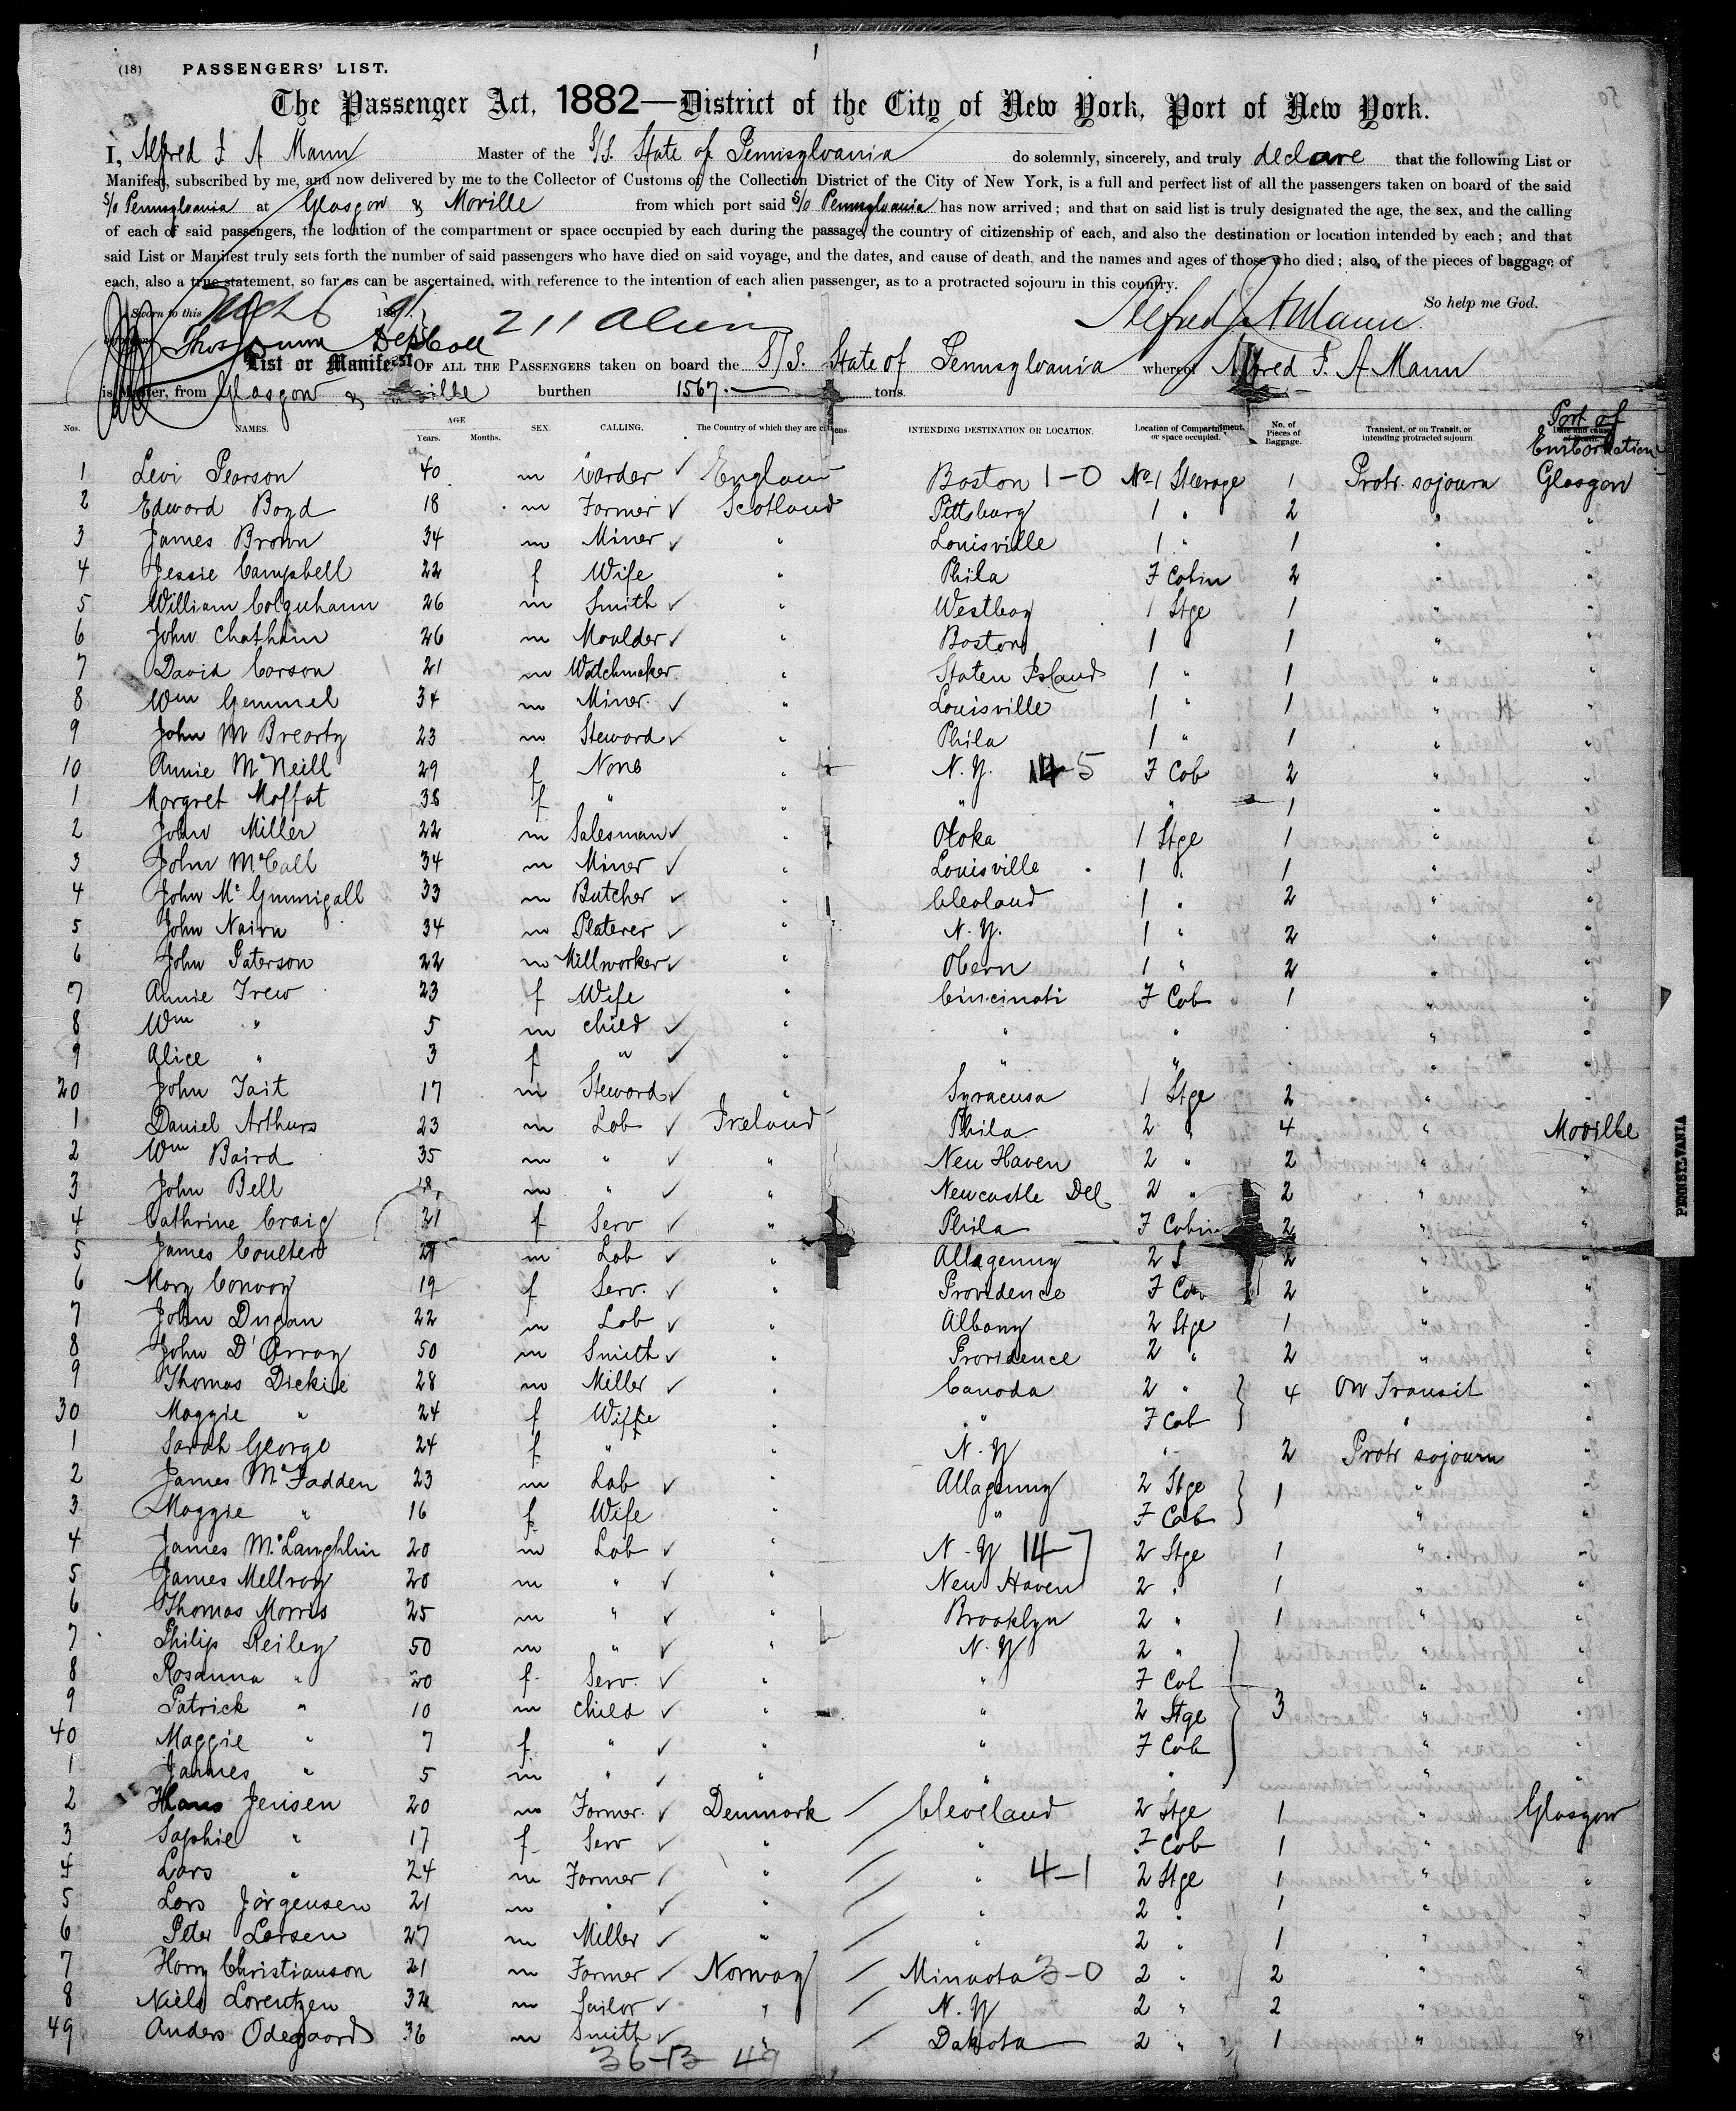 (18) PASSENGERS' LIST.
The Passenger Act, 1882—District of the City of New York, Port of New York.
I, Alfred J A Mann Master of the S/S. State of Pennsylvania do solemnly, sincerely, and truly declare that the following List or
Manifest, subscribed by me, and now delivered by me to the Collector of Customs of the Collection District of the City of New York, is a full and perfect list of all the passengers taken on board of the said
S/o Pennsylvania at Glasgow & Moville from which port said S/o Pennsylvania has now arrived; and that on said list is truly designated the age, the sex, and the calling
of each of said passengers, the location of the compartment or space occupied by each during the passage, the country of citizenship of each, and also the destination or location intended by each; and that
said List or Manifest truly sets forth the number of said passengers who have died on said voyage, and the dates, and cause of death, and the names and ages of those who died; also, of the pieces of baggage of
each, also a true statement, so far as can be ascertained, with reference to the intention of each alien passenger, as to a protracted sojourn in this country.
Sworn to this So help me God.
211 Aliens Alfred J A Mann
List or Manifest OF ALL THE PASSENGERS taken on board the S/S. State of Pennsylvania whereof Alfred J. A Mann
is Master, from Glasgow & Moville burthen 1567 tons
Nos. NAMES. AGE Years. Months. SEX. CALLING. The Country of which they are citizens INTENDING DESTINATION OR LOCATION. Location of Compartment, or space occupied. No. of Pieces of Baggage. Transient, or on Transit, or intending protracted sojourn Port of Embarkation
1 Levi Pearson 40 m Carder ✓ England Boston 1-0 No 1 Steerage 1 Protr. sojourn Glasgow
2 Edward Boyd 18 m Farmer ✓ Scotland Pittsburg 1 " 2 " "
3 James Brown 34 m Miner ✓ " Louisville 1 " 1 " "
4 Jessie Campbell 22 f Wife " Phila F Cabin 2 " "
5 William Colquhaun 26 m Smith ✓ " Westboy 1 Stge 1 " "
6 John Chatham 26 m Moulder ✓ " Boston 1 " 1 " "
7 David Carson 21 m Watchmaker " Staten Island 1 " 1 " "
8 Wm Gemmel 34 m Miner ✓ " Louisville 1 " 1 " "
9 John M Brearty 23 m Steward ✓ " Phila 1 " 1 " "
10 Annie McNeill 29 f None " N. Y. 14-5 F Cab 2 " "
1 Margret Moffat 38 f " " " " 1 " "
2 John Miller 22 m Salesman ✓ " Otoka 1 Stge 1 " "
3 John McCall 34 m Miner ✓ " Louisville 1 " 1 " "
4 John McGunnigall 33 m Butcher ✓ " Cleveland 1 " 2 " "
5 John Nairn 34 m Platerer ✓ " N. Y. 1 " 2 " "
6 John Paterson 22 m Millworker ✓ " Obern 1 " 2 " "
7 Annie Trew 23 f Wife " Cincinati F Cab 1 " "
8 Wm " 5 m child ✓ " " " " "
9 Alice " 3 f " ✓ " " " " "
20 John Tait 17 m Steward ✓ " Syracusa 1 Stge 2 " "
1 Daniel Arthurs 23 m Lab ✓ Ireland Phila 2 " 4 " Moville
2 Wm Baird 35 m " ✓ " New Haven 2 " 2 " "
3 John Bell 18 m " ✓ " Newcastle Del 2 " 2 " "
4 Cathrine Craig 21 f Serv ✓ " Phila F Cabin 2 " "
5 James Coulter 21 m Lab ✓ " Allagenny 2 S 2 " "
6 Mary Convoy 19 f Serv. ✓ " Providence F Cab 2 " "
7 John Dugan 22 m Lab ✓ " Albany 2 Stge 1 " "
8 John D'Arroy 50 m Smith ✓ " Providence 2 " 2 " "
9 Thomas Dickie 28 m Miller ✓ " Canada 2 " 4 On Transit "
30 Maggie " 24 f Wiffe " " F Cab " "
1 Sarah George 24 f " " N. Y " 2 Protr sojourn "
2 James McFadden 23 m Lab ✓ " Allagenny 2 Stge 1 " "
3 Maggie " 16 f Wife " " F Cab " "
4 James McLaughlin 20 m Lab ✓ " N-Y 14-7 2 Stge 1 " "
5 James Mellroy 20 m " ✓ " New Haven 2 " 1 " "
6 Thomas Morris 25 m " ✓ " Brooklyn 2 " 1 " "
7 Philip Reiley 50 m " ✓ " N. Y 2 " "
8 Rosanna " 20 f Serv. ✓ " " F Cab "
9 Patrick " 10 m child ✓ " " 2 Stge 3 " "
40 Maggie " 7 f " ✓ " " F Cab " "
1 James " 5 m " ✓ " " " " "
2 Hans Jensen 20 m Farmer ✓ Denmark / Cleveland 2 Stge 1 " Glasgow
3 Sophie " 17 f Serv ✓ " / " F Cab 1 " "
4 Lars " 24 m Farmer ✓ " / " 4-1 2 Stge 1 " "
5 Lars Jörgensen 21 m " ✓ " / " 2 " 1 " "
6 Peter Larsen 27 m Miller ✓ " / " 2 " 1 " "
7 Harry Christianson 21 m Farmer ✓ Norway / Minaota 3-0 2 " 2 " "
8 Niels Lorentzen 32 m Sailor ✓ " / N. Y 2 " 2 " "
49 Anders Odegaard 36 m Smith ✓ " / Dakota 2 " 1 " "
36-13 49
PENNSYLVANIA